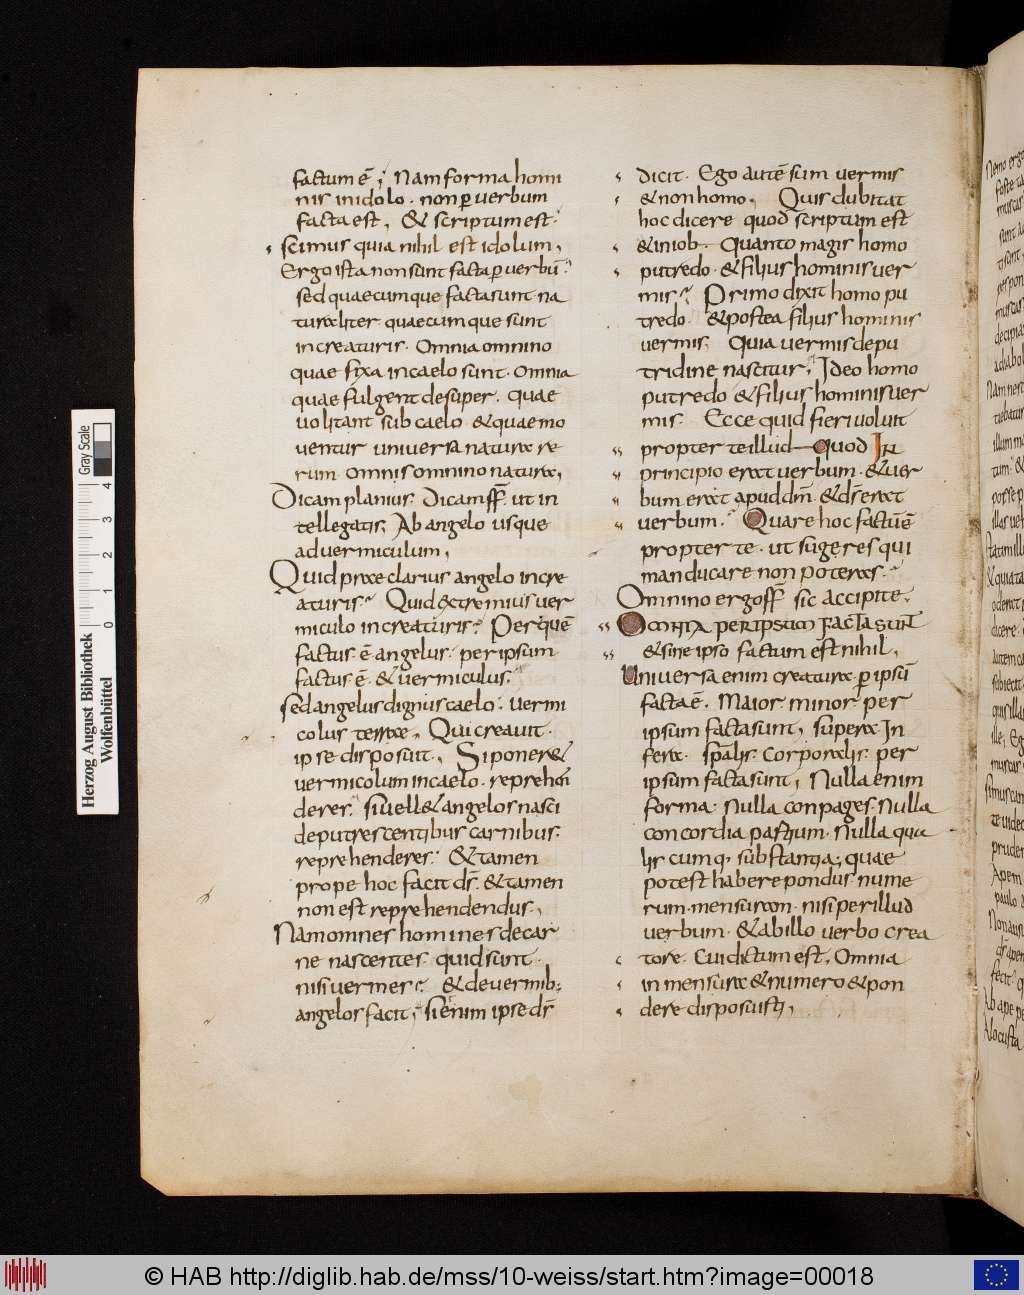 factum ē; Nam forma homi
nis in idolo. non ꝑ uerbum
facta est, & scriptum est.
scimus quia nihil est idolum,
Ergo ista non sunt facta ꝑ uerbū.
sed quaecumque facta sunt na
turaliter. quaecumque sunt
in creaturis. Omnia omnino
quae fixa in caelo sunt. Omnia
quae fulgent desuper. quae
uolitant sub caelo & quae mo
uentur uniuersa naturae re
rum. omnis omnino naturae,
Dicam planius. Dicam ff̄. ut in
tellegatis, Ab angelo usque
ad uermiculum,
Quid praeclarius angelo in cre
aturis? Quid extremius uer
miculo in creaturis? Per quē
factus ē angelus. per ipsum
factus ē & uermiculus;
sed angelus dignus caelo. uermi
colus terrae, Qui creauit.
ipse disposuit, Si poner&
uermicolum in caelo. reprehen
deres. si uell& angelos nasci
de putrescentibus carnibus.
reprehenderes. & tamen
prope hoc facit dr̄. & tamen
non est reprehendendus,
Nam omnes homines de car
ne nascentes. quid sunt.
nisi uermes? & de uermib;
angelos facit, si enim ipse dr̄
dicit. Ego autē sum uermis
& non homo, Quis dubitat
hoc dicere quod scriptum est
& in iob. Quanto magis homo
putredo. & filius hominis uer
mis? Primo dixit homo pu
tredo. & postea filius hominis
uermis; Quia uermis de pu
tridine nascitur, Ideo homo
putredo & filius hominis uer
mis. Ecce quid fieri uoluit
propter te illud quod IN
principio erat uerbum. & uer
bum erat apud dm̄. & dr̄ erat
uerbum. Quare hoc factū ē
propter te. ut sugeres qui
manducare non poteras.
Omnino ergo ff̄ sic accipite.
Omnia per ipsum facta sunt
& sine ipso factum est nihil,
Uniuersa enim creatura ꝑ ipsū
facta ē, Maior minor per
ipsum facta sunt, supera In
fera. sp̄alis. corporalis. per
ipsum facta sunt, Nulla enim
forma. Nulla conpages. Nulla
concordia partium. Nulla qua
liscumq; substantia; quae
potest habere pondus. nume
rum. mensuram. nisi per illud
uerbum. & ab illo uerbo crea
tore. cui dictum est, Omnia
in mensura & numero & pon
dere disposuisti,
Herzog August Bibliothek
Wolfenbüttel
0 1 2 3 4
Gray Scale
© HAB http://diglib.hab.de/mss/10-weiss/start.htm?image=00018